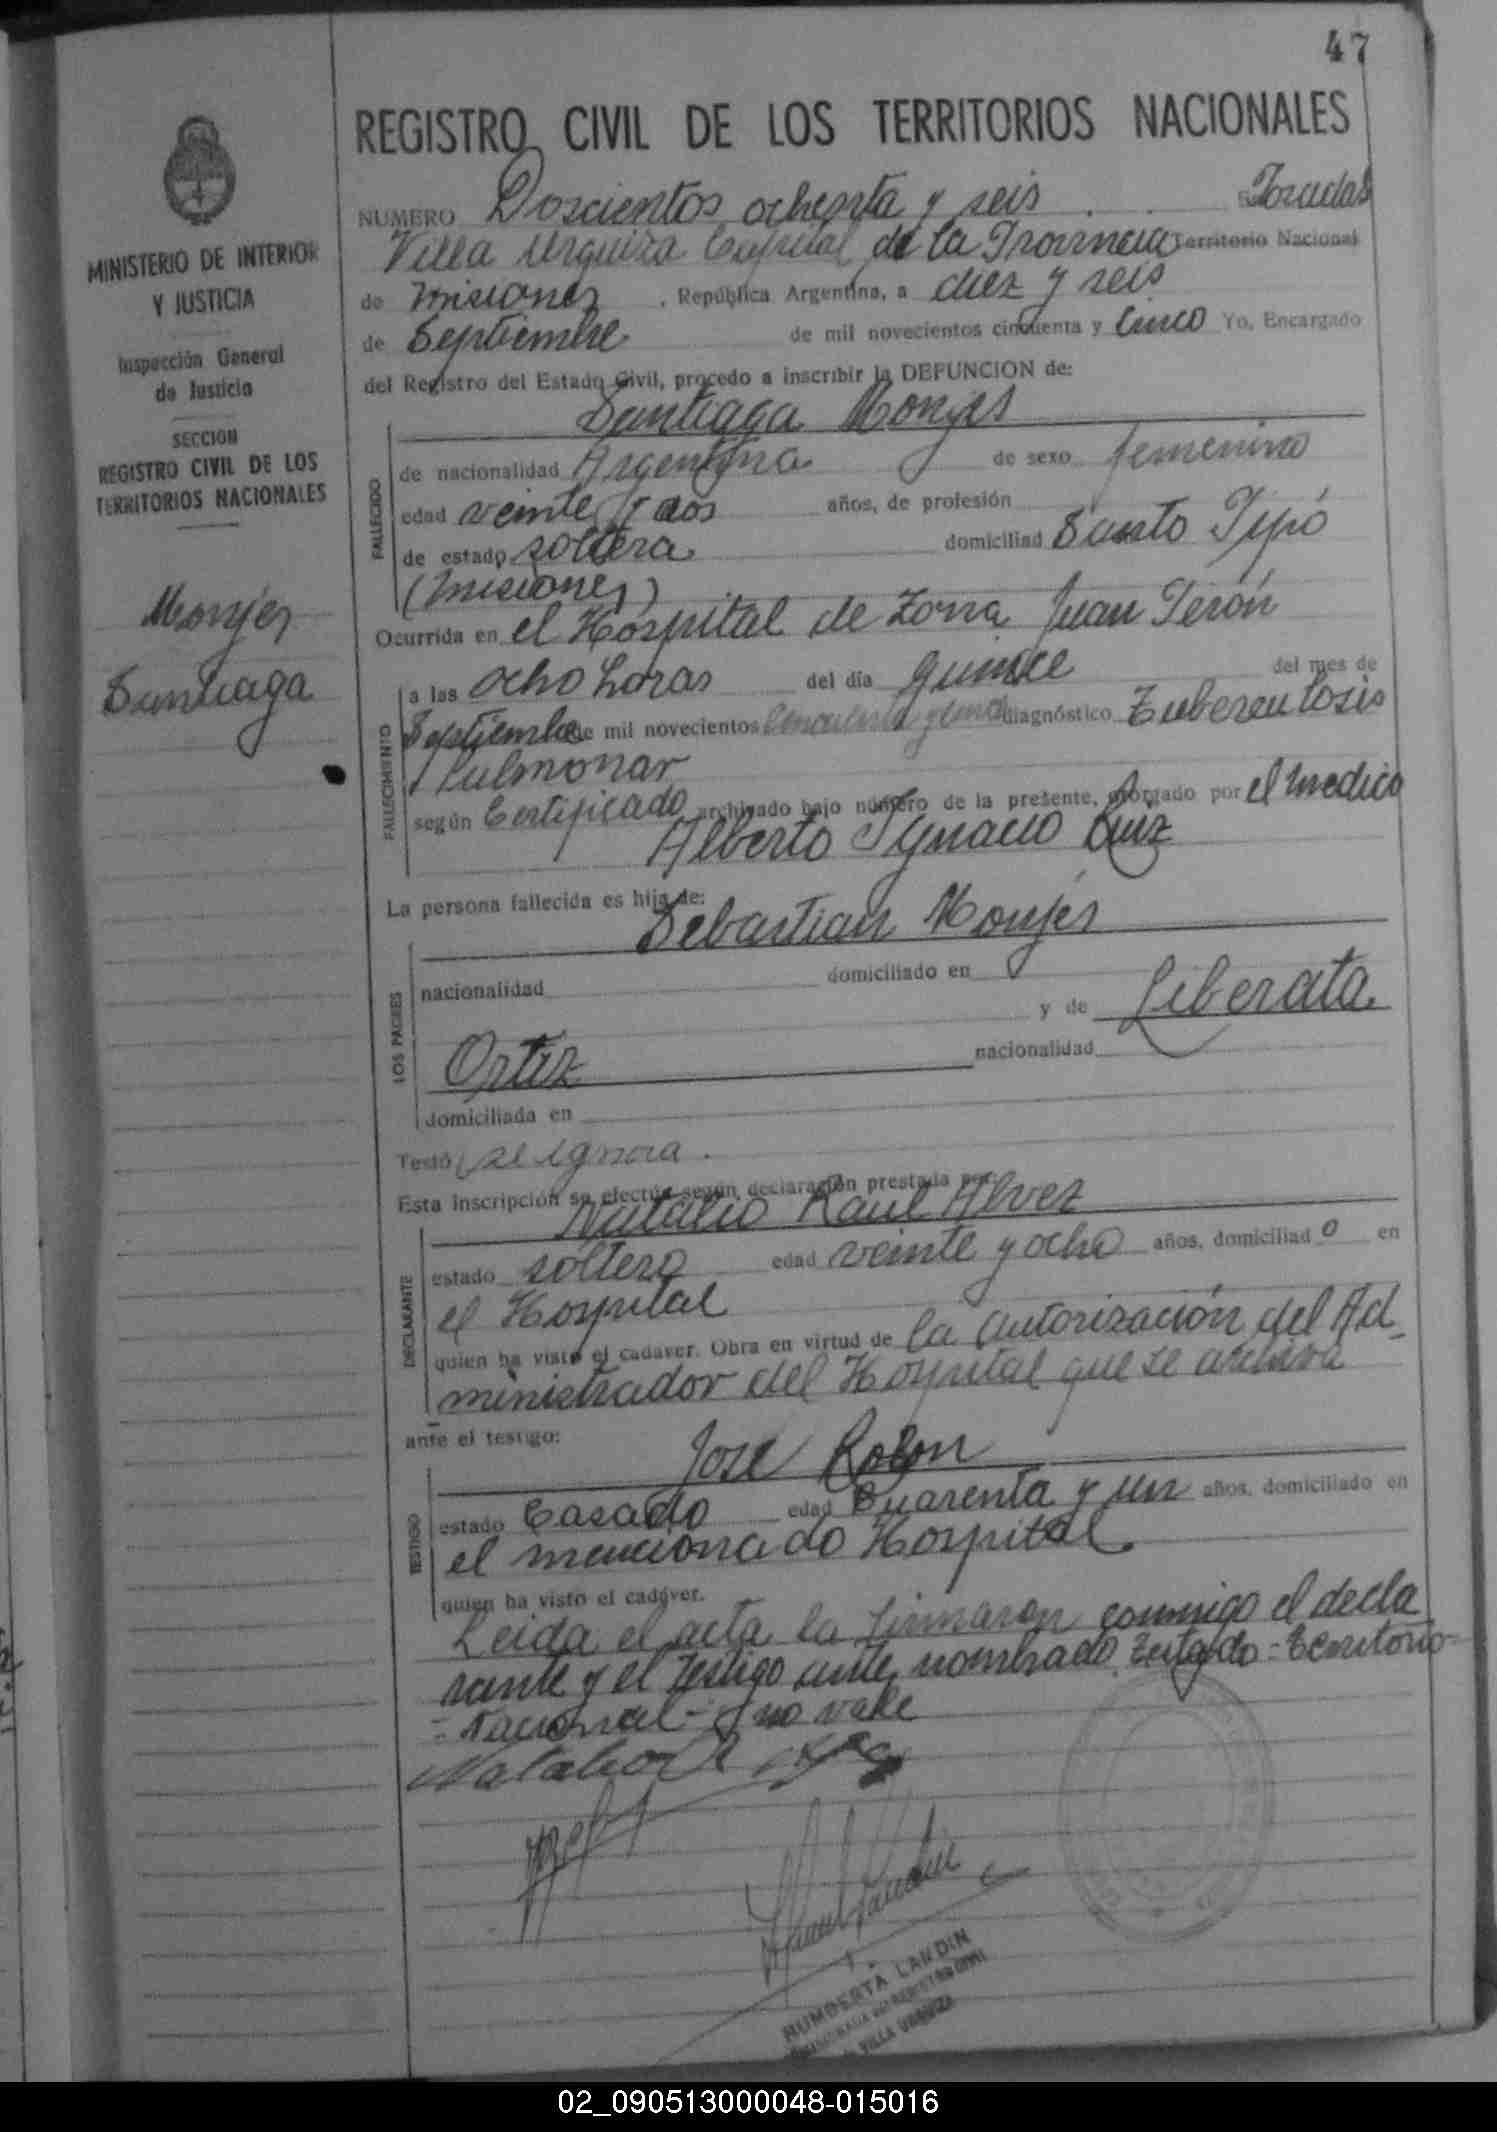 47
REGISTRO CIVIL DE LOS TERRITORIOS NACIONALES
MINISTERIO DE INTERIOR
Y JUSTICIA
Inspección General
de Justicia
SECCION
REGISTRO CIVIL DE LOS
TERRITORIOS NACIONALES
Monjes
Santiaga
NUMERO Doscientos ochenta y seis Posadas
Villa Urquiza Capital de la Provincia Territorio Nacional
de Misiones, República Argentina, a diez y seis
de Septiembre de mil novecientos cincuenta y Cinco Yo, Encargado
del Registro del Estado Civil, procedo a inscribir la DEFUNCION de:
Santiaga Monjes
FALLECIDO
de nacionalidad Argentina de sexo femenino
edad veinte y dos años, de profesión
de estado soltera domiciliad Santo Pipó
(Misiones)
Ocurrida en el Hospital de Zona Juan Perón
FALLECIMIENTO
a las ocho horas del día quince del mes de
Septiembre de mil novecientos cincuenta y cinco diagnóstico Tuberculosis
Pulmonar
según Certificado archivado bajo número de la presente, otorgado por el médico
Alberto Ygnacio Ruiz
La persona fallecida es hija de:
Sebastian Monjes
LOS PADRES
nacionalidad domiciliado en
y de Liberata
Ortiz nacionalidad
domiciliada en
Testó se ignora.
Esta inscripción se efectúa según declaración prestada por
Natalio Raul Alvez
DECLARANTE
estado soltero edad veinte y ocho años, domiciliad o en
el Hospital
quien ha visto el cadaver. Obra en virtud de la autorización del Ad-
ministrador del Hospital que se archiva
ante el testigo:
Jose Rolon
TESTIGO
estado Casado edad Cuarenta y un años, domiciliado en
el mencionado Hospital
quien ha visto el cadáver.
Leida el acta la firmaron conmigo el decla
rante y el testigo ante nombrado. Testado = Territorio
= Nacional = no vale
HUMBERTA LANDIN
VILLA URQUIZA
02_090513000048-015016